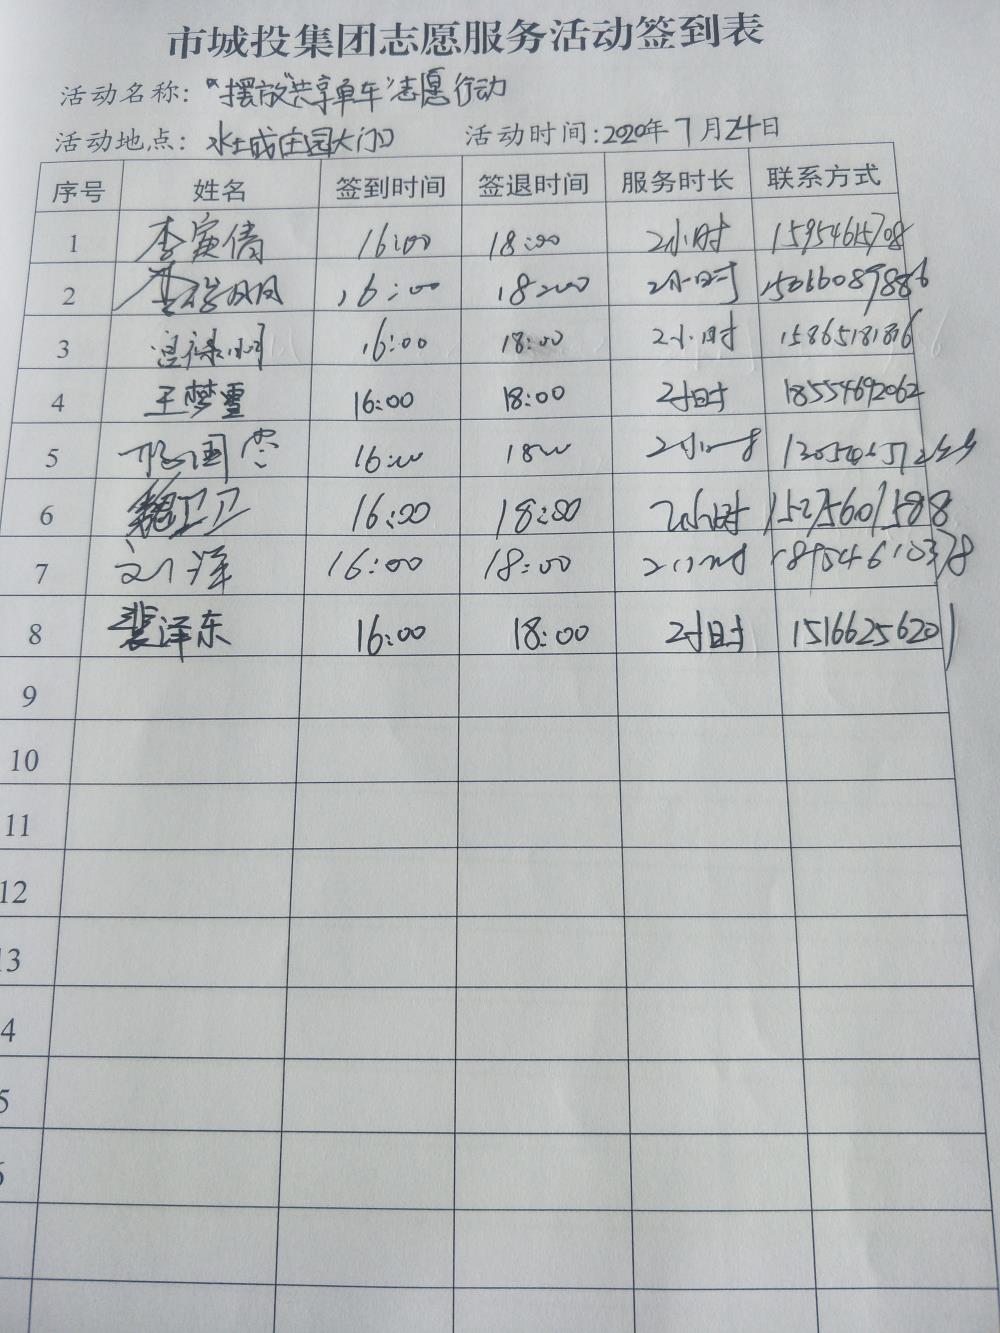 市城投集团志愿服务活动签到表
活动名称：“摆放“共享单车”志愿行动
活动地点：水城庄园大门口 活动时间：2020年7月24日
序号 姓名 签到时间 签退时间 服务时长 联系方式
1 李寅倩 16:00 18:00 2小时 15954615708
2 16:00 18:00 2小时
3 16:00 18:00 2小时
4 王梦雪 16:00 18:00 2小时 18554692062
5 16:00 18:00 2小时
6 魏卫卫 16:00 18:00 2小时 15275601588
7 刘洋 16:00 18:00 2小时
8 裴泽东 16:00 18:00 2小时 15166256201
9
10
11
12
13
4
5